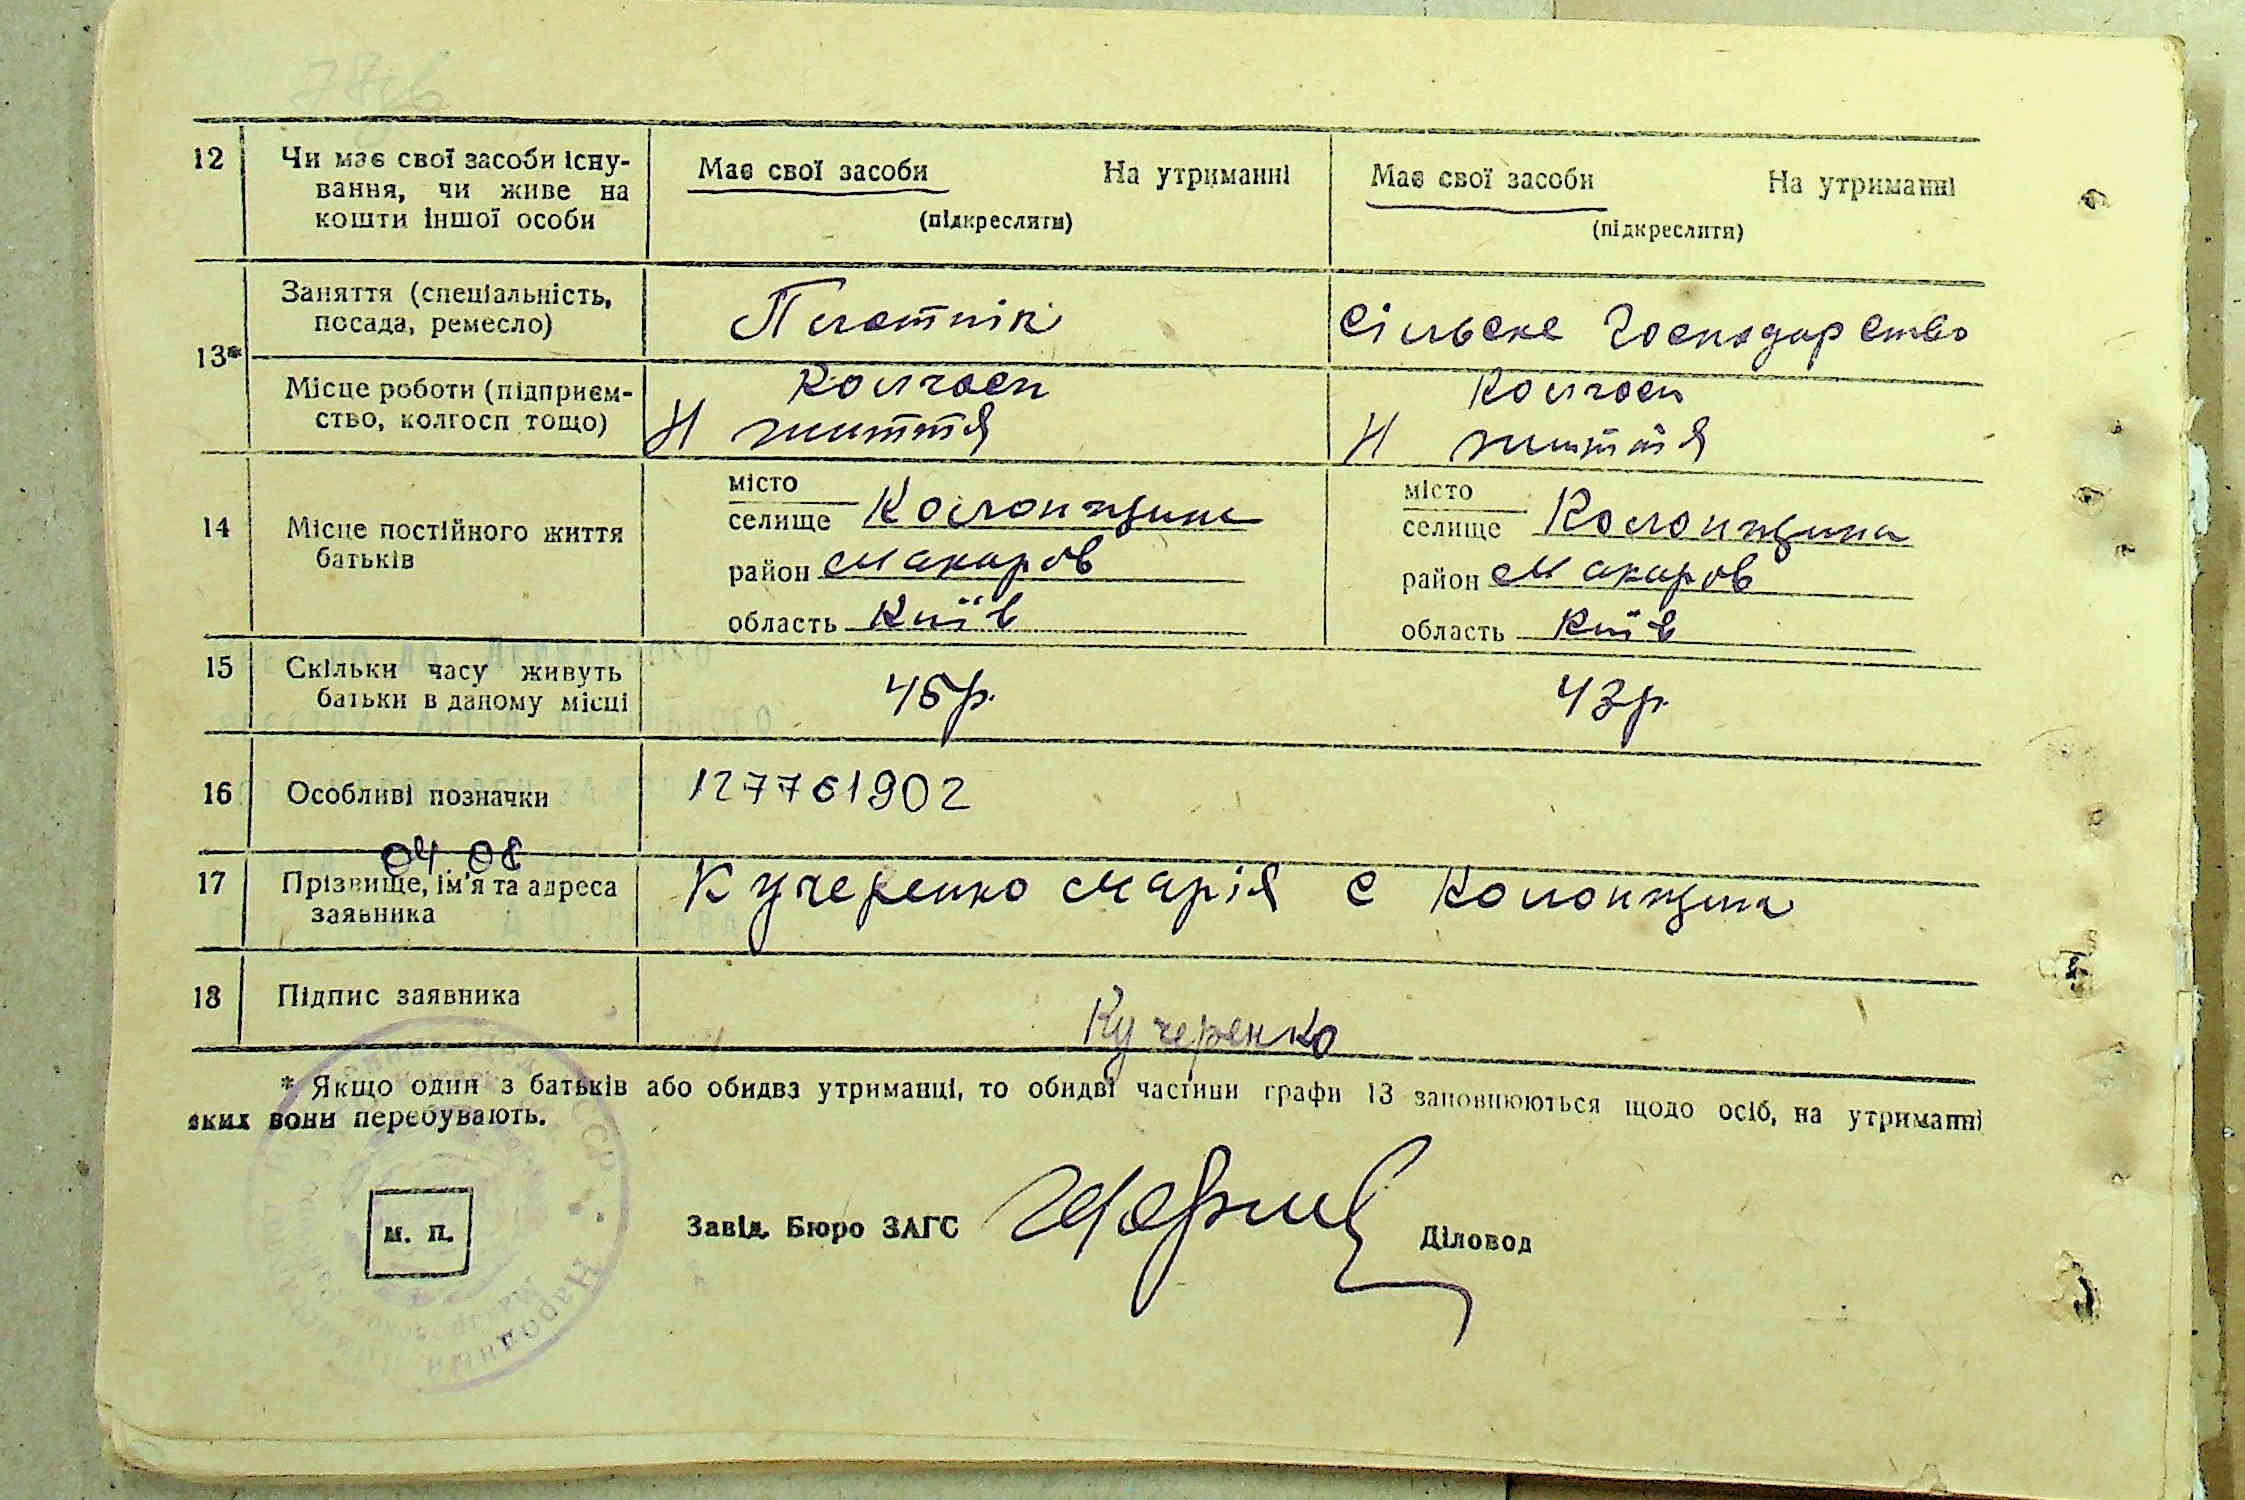 12 Чи має свої засоби існу-
вання, чи живе на
кошти іншої особи
Має свої засоби На утриманні
(підкреслити)
Має свої засоби На утриманні
(підкреслити)
13*
Заняття (спеціальність,
посада, ремесло)
Плотнік
Сільске Господарство
Місце роботи (підприєм-
ство, колгосп тощо)
Колгосп
Н життя
Колгосп
Н життя
14 Місце постійного життя
батьків
місто
селище Колонщина
район Макаров
область Київ
місто
селище Колонщина
район Макаров
область Київ
15 Скільки часу живуть
батьки в даному місці
45р.
43р.
16 Особливі позначки
127761902
04 08
17 Прізвище, ім'я та адреса
заявника
Кучеренко Марія с Колонщина
18 Підпис заявника
Кучеренко
* Якщо один з батьків або обидва утриманці, то обидві частини графи 13 заповнюються щодо осіб, на утриманні
яких вони перебувають.
М. П.
Завід. Бюро ЗАГС
Діловод